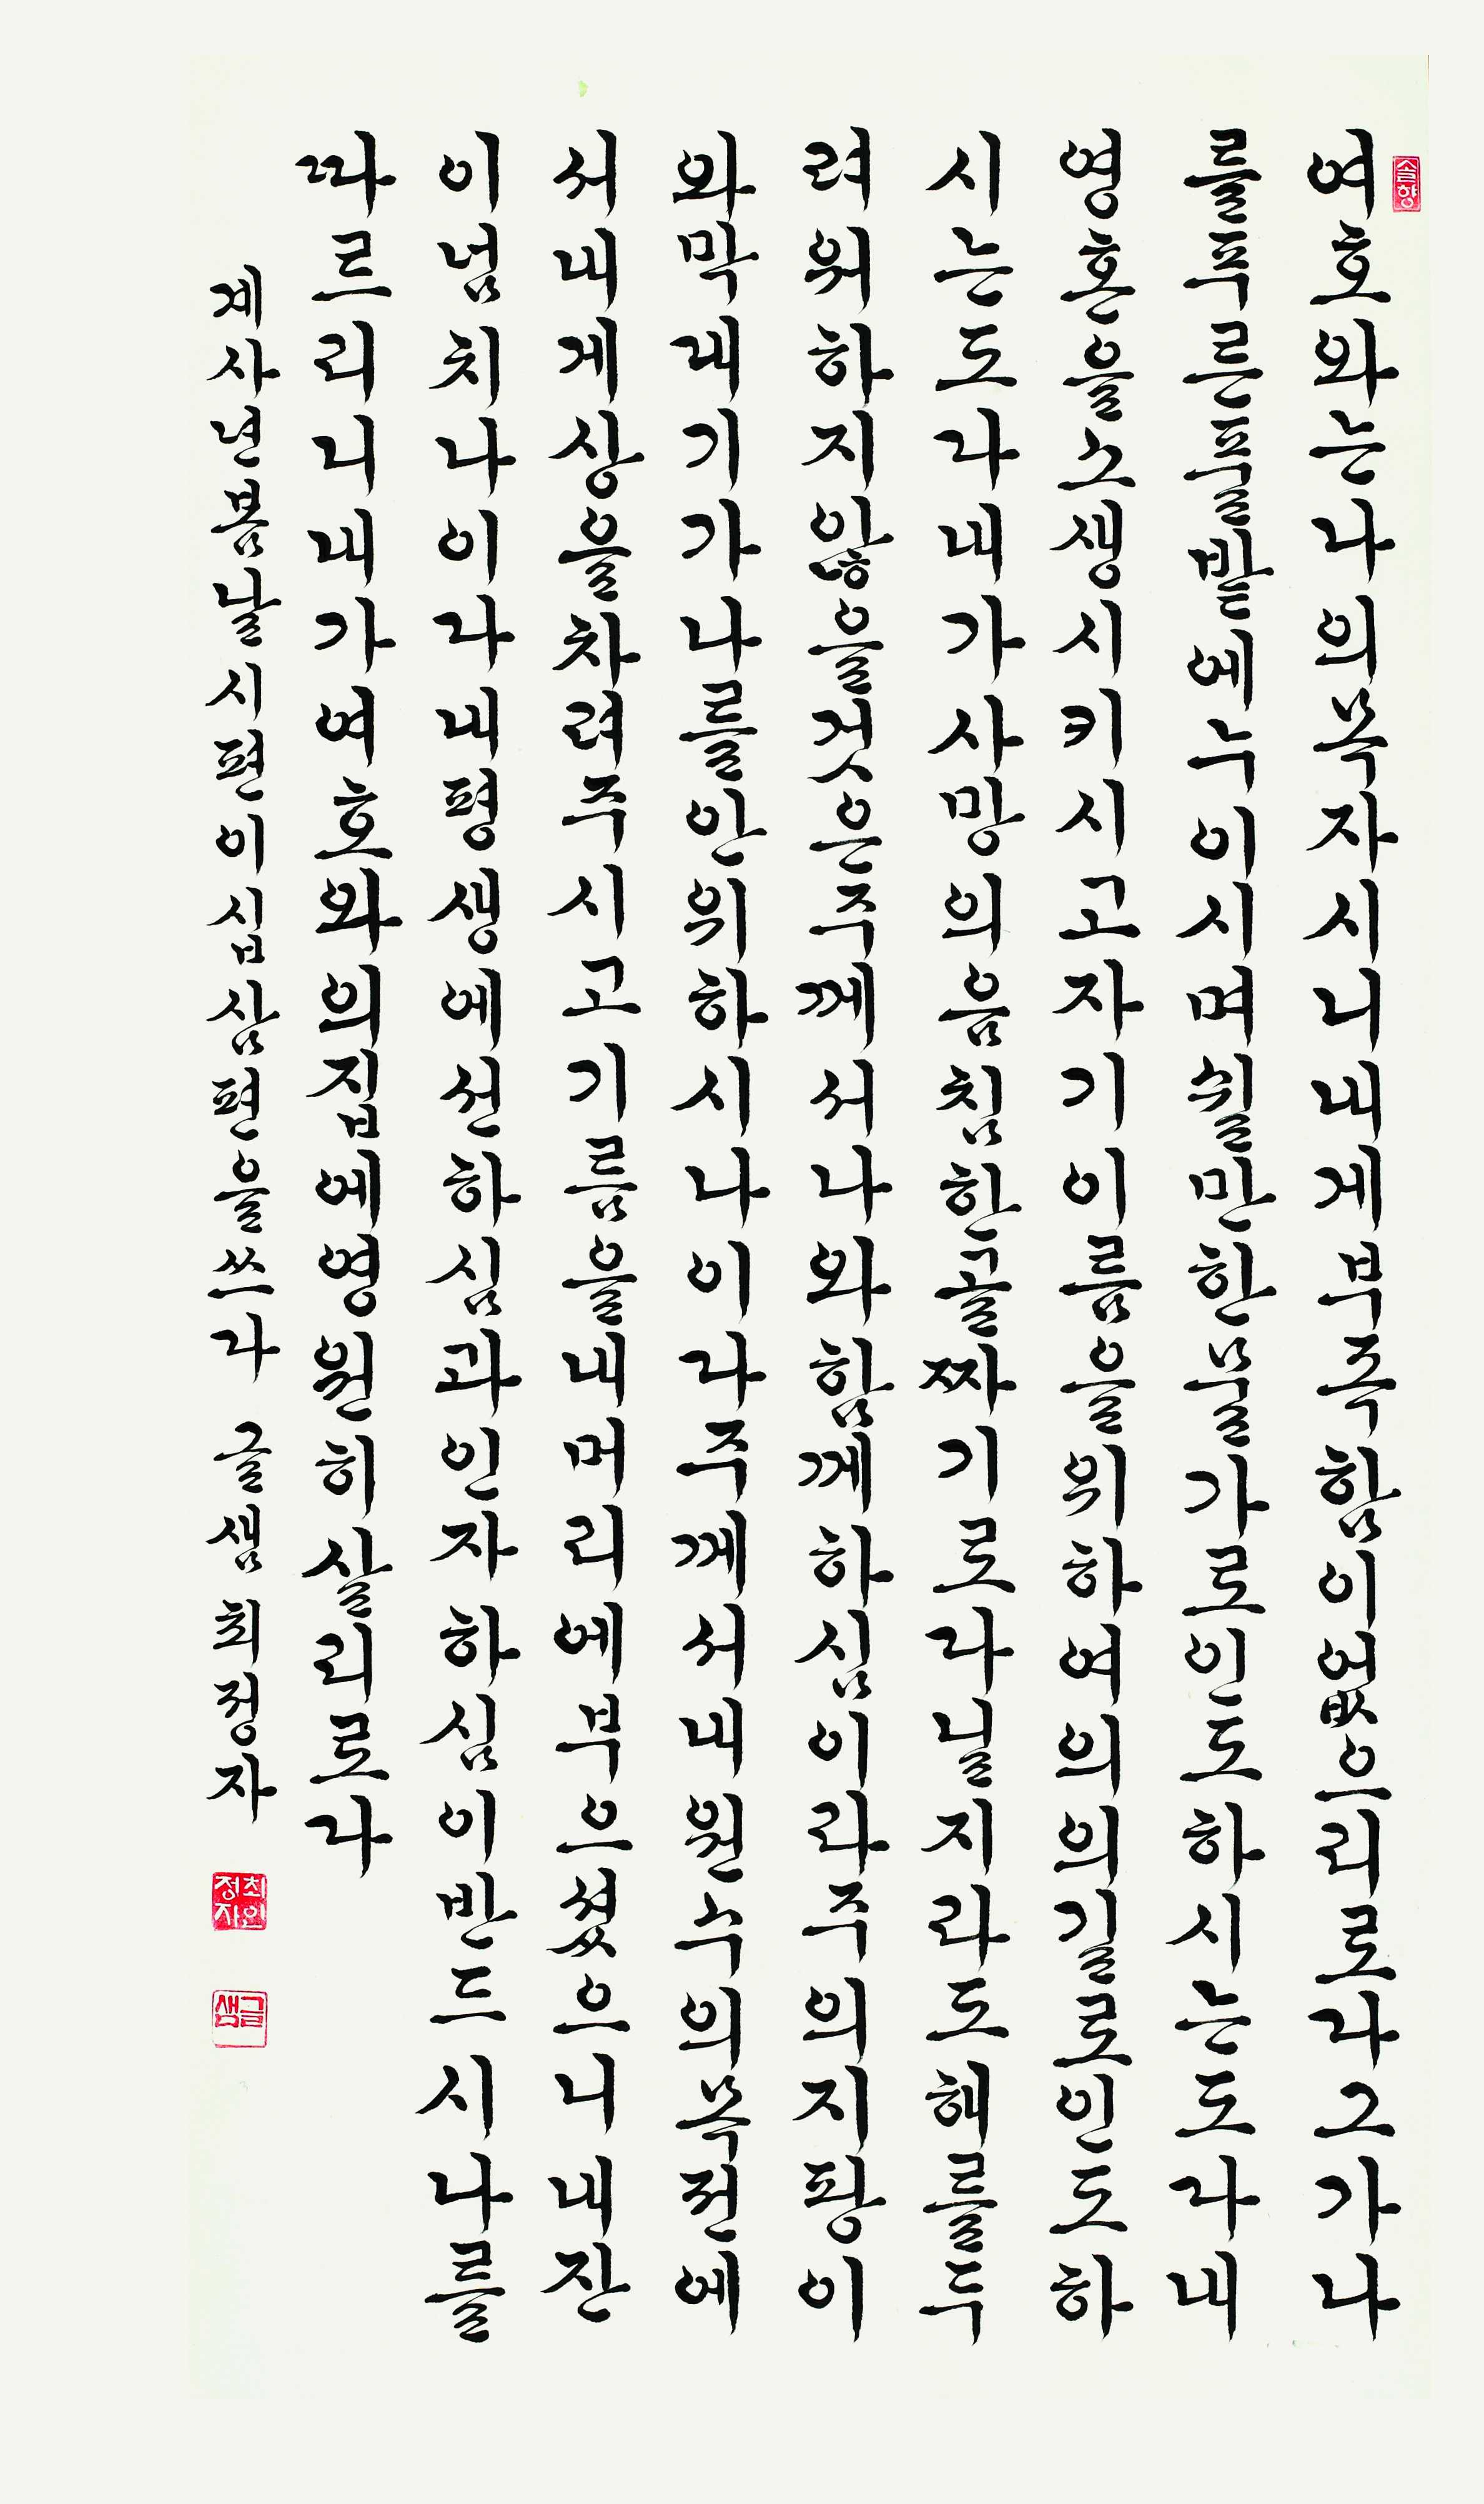 솔향
여호와는나의목자시니내게부족함이없으리로다그가나
를푸른풀밭에누이시며쉴만한물가로인도하시는도다내
영혼을소생시키시고자기이름을위하여의의길로인도하
시는도다내가사망의음침한골짜기로다닐지라도해를두
려워하지않을것은주께서나와함께하심이라주의지팡이
와막대기가나를안위하시나이다주께서내원수의목전에
서내게상을차려주시고기름을내머리에부으셨으니내잔
이넘치나이다내평생에선하심과인자하심이반드시나를
따르리니내가여호와의집에영원히살리로다
계사년봄날시편이십삼편을쓰다 글샘최정자
최정자인
글샘